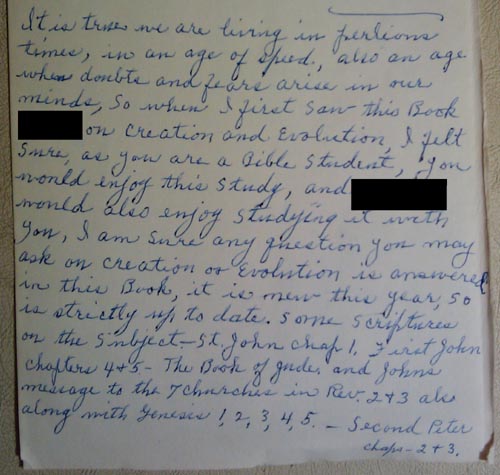 It is true we are living in perlious
times, in an age of speed., also an age
when doubts and fears arise in our
minds, So when I first saw this Book
on Creation and Evolution, I felt
Sure, as you are a Bible Student, you
would enjoy this study, and
would also enjoy studying it with
you, I am sure any question you may
ask on creation or Evolution is answered
in this Book, it is new this year, So
is strictly up to date. Some Scriptures
on the Subject - St. John Chap 1, First John
Chapters 4+5 - The Book of Jude, and Johns
message to the 7 churches in Rev. 2+3 also
along with Genesis 1, 2, 3, 4, 5. - Second Peter
chaps - 2+3.